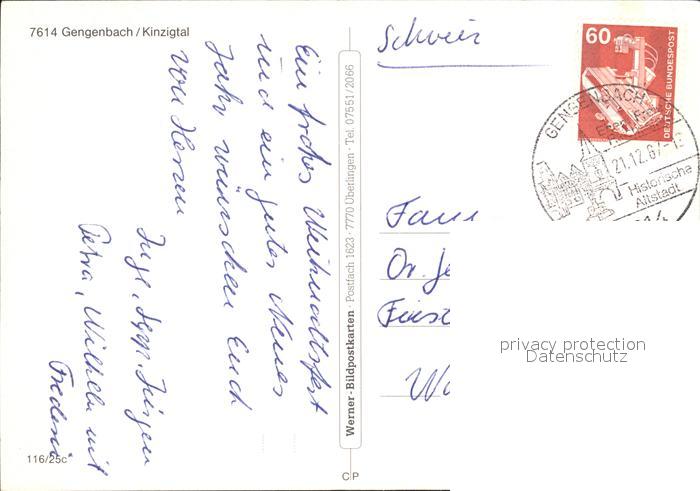 7614 Gengenbach / Kinzigtal
Ein frohes Weihnachtsfest
und ein gutes Neues
Jahr wünschen Euch
von Herzen
Inge, Jürgen
Petra, Wilhelm mit
Frederic
116/25c
Werner-Bildpostkarten · Postfach 1623 · 7770 Überlingen · Tel. 07551/2066
C|P
Schweiz
60
DEUTSCHE BUNDESPOST
GENGENBACH
21.12.87-18
Historische
Altstadt
Fam
Dr. Je
First
Wo
privacy protection
Datenschutz